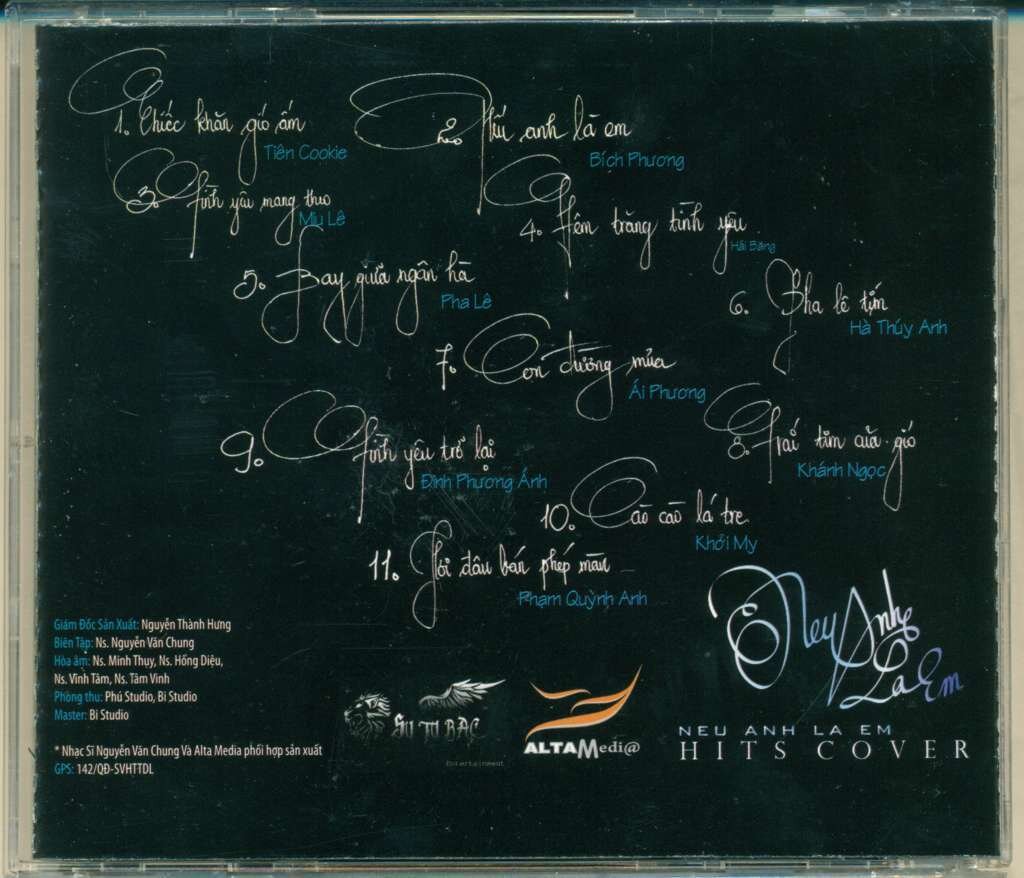 1. Chiếc khăn gió ấm
Tiên Cookie
2. Nếu anh là em
Bích Phương
3. Tình yêu mang theo
Miu Lê
4. Đêm trăng tình yêu
Hải Băng
5. Bay giữa ngân hà
Pha Lê
6. Pha lê tím
Hà Thúy Anh
7. Con đường mưa
Ái Phương
9. Tình yêu trở lại
Đinh Phương Ánh
8. Trái tim của gió
Khánh Ngọc
10. Cào cào lá tre
Khởi My
11. Nơi đâu bán phép màu
Phạm Quỳnh Anh
Giám Đốc Sản Xuất: Nguyễn Thành Hưng
Biên Tập: Ns. Nguyễn Văn Chung
Hòa âm: Ns. Minh Thụy, Ns. Hồng Diệu,
Ns. Vĩnh Tâm, Ns. Tâm Vinh
Phòng thu: Phú Studio, Bi Studio
Master: Bi Studio
* Nhạc Sĩ Nguyễn Văn Chung Và Alta Media phối hợp sản xuất
GPS: 142/QĐ-SVHTTDL
SU TU BAC
Entertainment
ALTA Medi@
Neu Anh
La Em
NEU ANH LA EM
HITS COVER